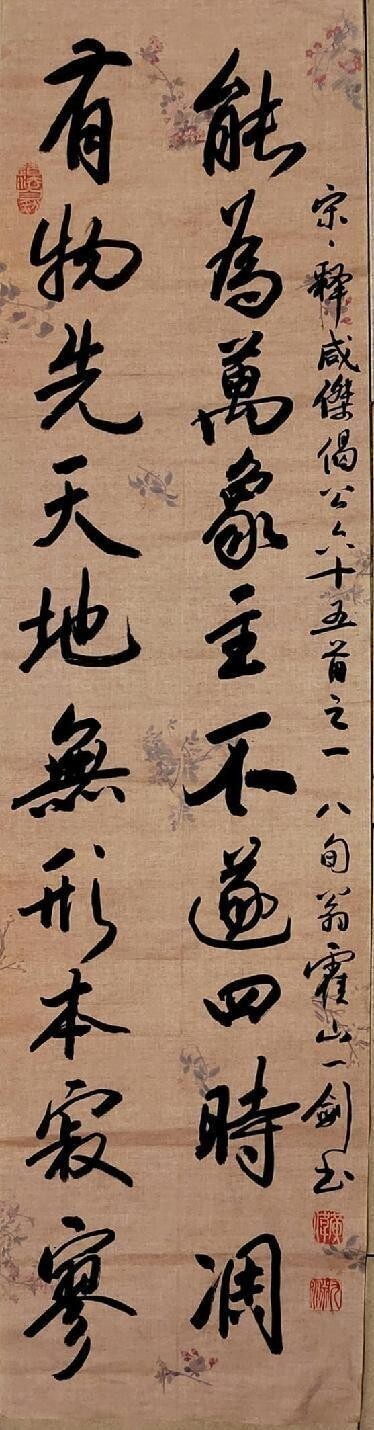 有物先天地無形本寂寥
能為萬象主不遂四時凋
宋、释咸傑偈公六十五首之一 八旬翁霍山一劍书